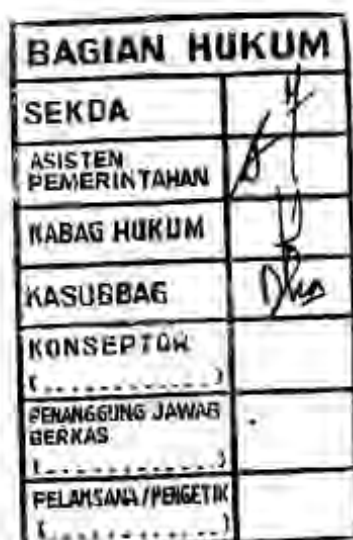 BAGIAN HUKUM
SEKDA
ASISTEN
PEMERINTAHAN
KABAG HUKUM
KASUBBAG
KONSEPTOR
(............)
PENANGGUNG JAWAB
BERKAS
(............)
PELAKSANA/PENGETIK
(............)